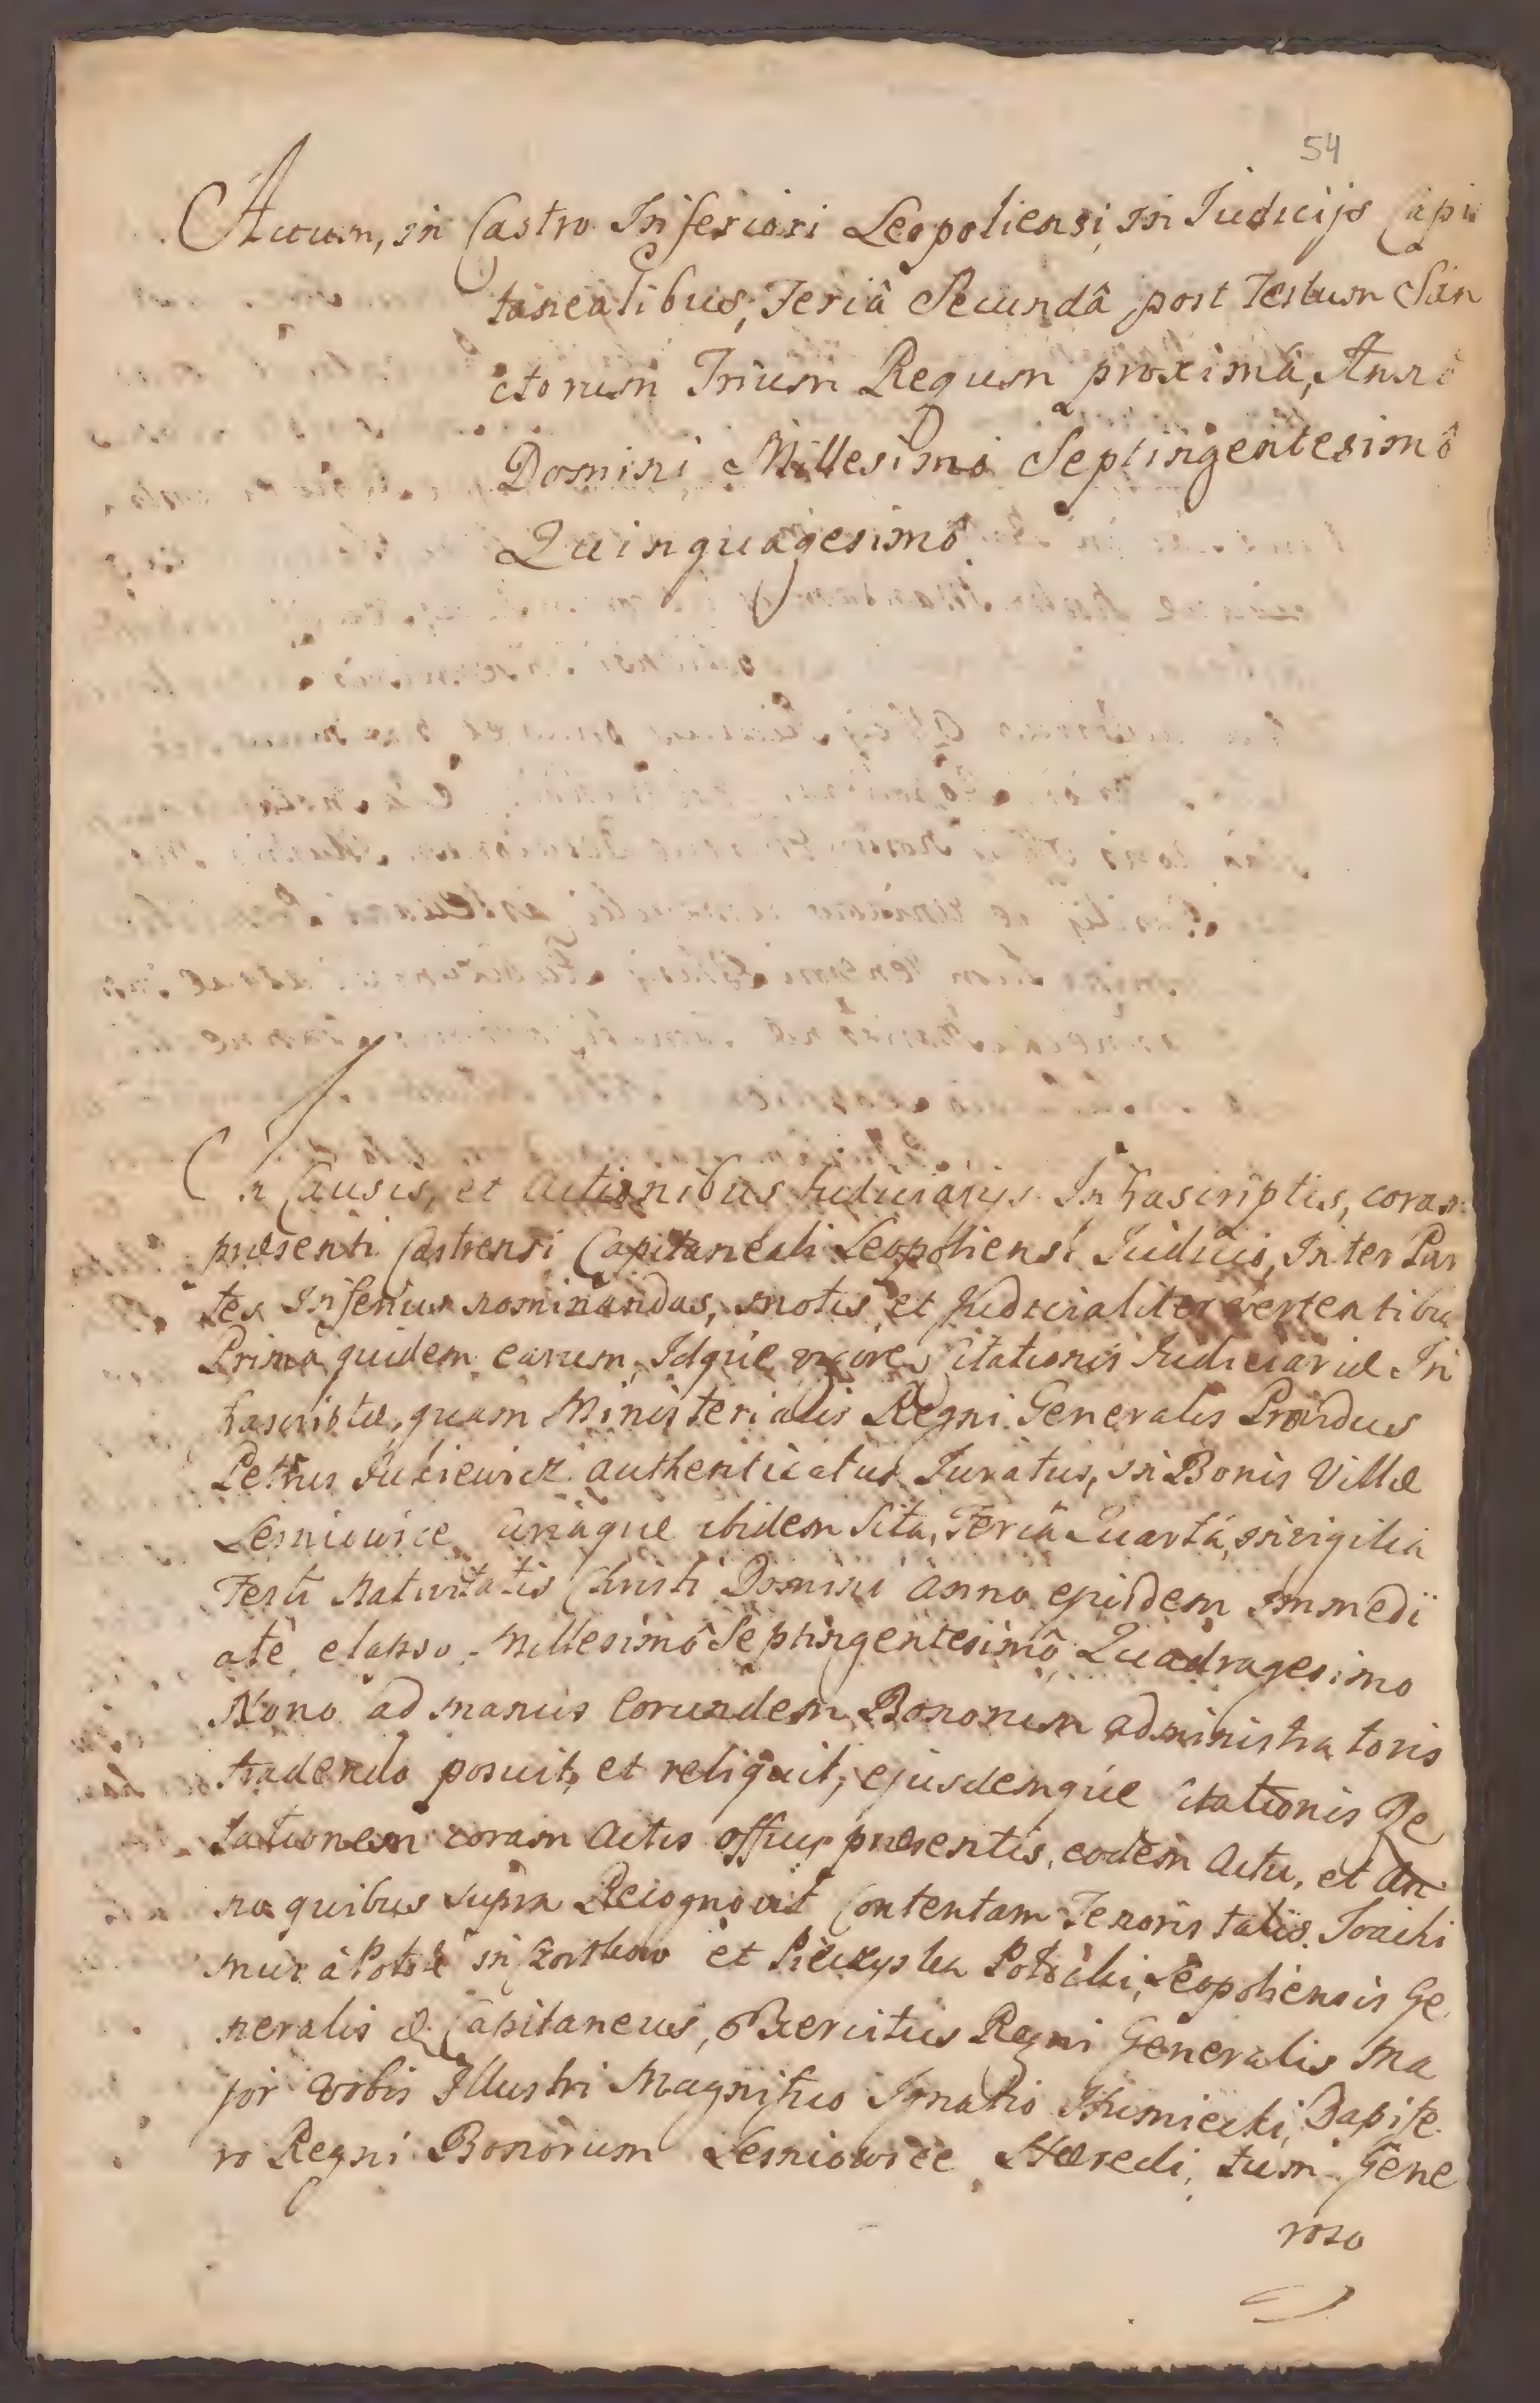 54
Actum, in Castro Inferiori Leopoliensi, in Iudicijs Capi
taneatibus, Feriâ Secundâ post Festum San
ctorum Trium Regum proximâ, Annô
Domini Millesimô Septingentesimô
Quinquagesimô
In Causis, et Actionibus Iudiciarijs Infrascriptis, coram
præsenti Castrensi Capitaneali Leopoliensi Iudicio, Inter Par
tes Inferius nominandas, motis, et Judicialiter vertentibus
Prima quidem earum, Idque vigore Citationis Iudiciariæ In
frascriptæ, quam Ministerialis Regni Generalis Providus
Petrus authenticatus Iuratus, in Bonis Villæ
Lesniowice, ibidem Sita, Feriâ Quartâ, in vigilia
Festi Nativitatis Christi Domini anno ejusdem immedi
atê elapso, Millesimô Septingentesimô Quadragesimo
Nono ad manus Eorundem Bonorum administratoris
tradendo posuit, et reliquit, ejusdemque Citationis Re
lationem coram Actis officij præsentis, eodem Actu, et an
no quibus supra Recognovit Contentam Tenoris talis. Joachi
mus à Potok in et Potocki, Leopoliensis Ge
neralis & Capitaneus, Exercitus Regni Generalis Ma
jor Vobis Illustri Magnifico Ignatio Humiecki, Dapife
ro Regni Bonorum Lesniowice Hæredi, tum Gene
roso